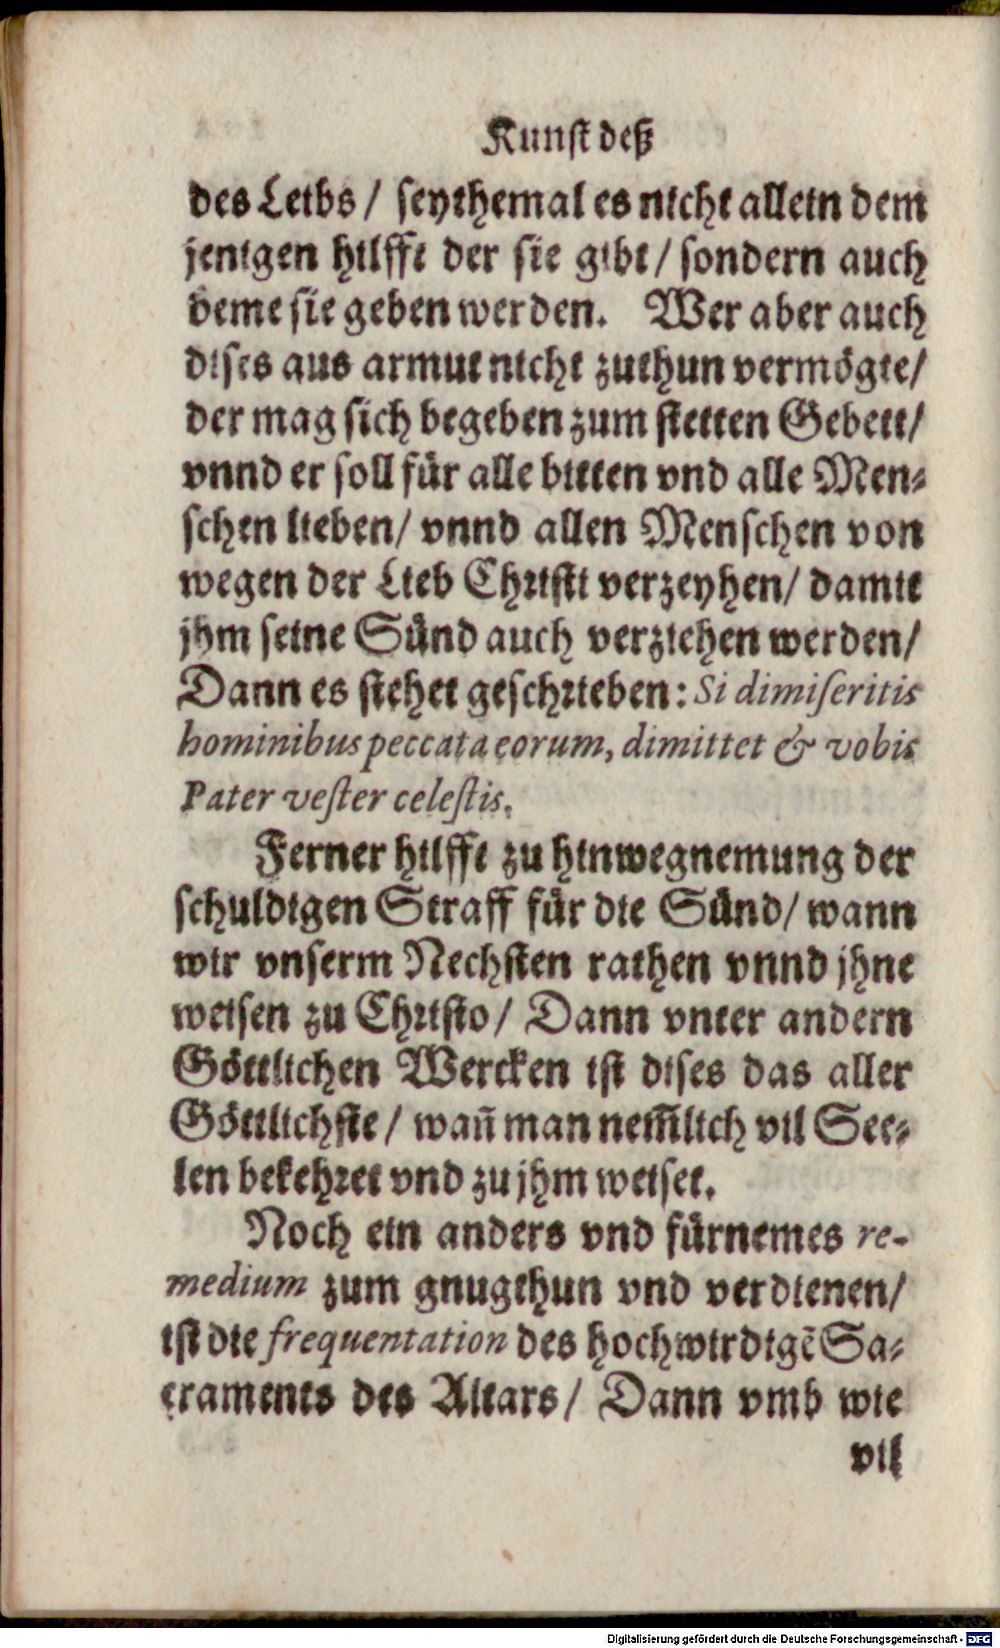 Kunst deß
des Leibs / seythemal es nicht allein dem
jenigen hilfft der sie gibt / sondern auch
deme sie geben werden. Wer aber auch
dises aus armut nicht zuthun vermögte /
der mag sich begeben zum stetten Gebett /
vnnd er soll für alle bitten vnd alle Men-
schen lieben / vnnd allen Menschen von
wegen der Lieb Christi verzeyhen / damit
jhm seine Sünd auch verziehen werden /
Dann es stehet geschrieben: Si dimiseritis
hominibus peccata eorum, dimittet & vobis
Pater vester celestis.
Ferner hilfft zu hinwegnemung der
schuldigen Straff für die Sünd / wann
wir vnserm Nechsten rathen vnnd jhne
weisen zu Christo / Dann vnter andern
Göttlichen Wercken ist dises das aller
Göttlichste / wañ man nem̃lich vil See-
len bekehret vnd zu jhm weiset.
Noch ein anders vnd fürnemes re-
medium zum gnugthun vnd verdienen /
ist die frequentation des hochwirdigẽ Sa-
craments des Altars / Dann vmb wie
vil
Digitalisierung gefördert durch die Deutsche Forschungsgemeinschaft - DFG